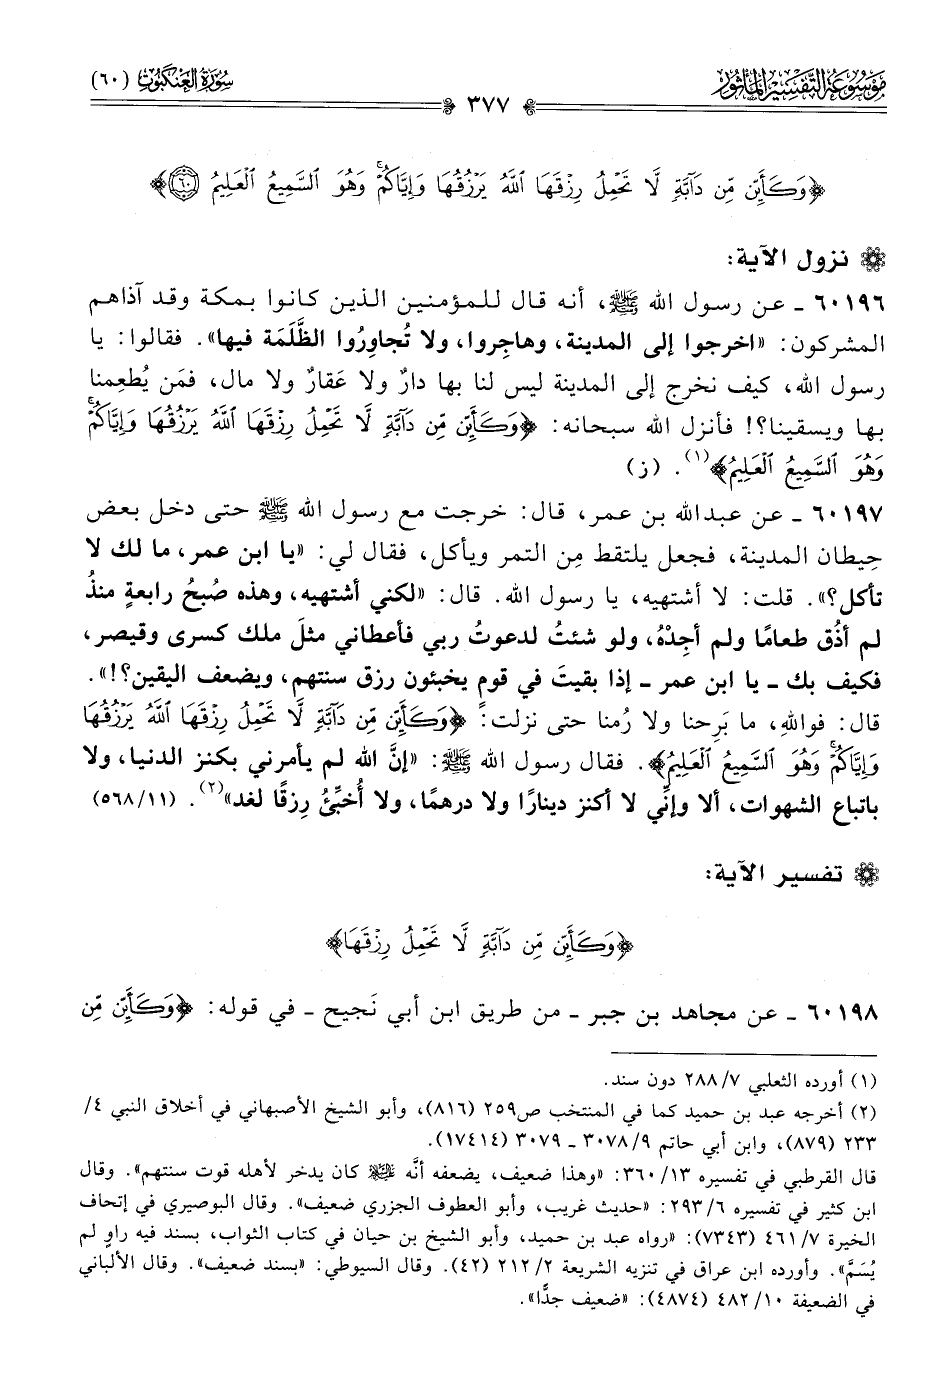 موسوعة التفسير المأثور
سورة العنكبوت (٦٠)
٣٧٧
﴿وَكَأَيِّن مِّن دَآبَّةٍ لَّا تَحْمِلُ رِزْقَهَا ٱللَّهُ يَرْزُقُهَا وَإِيَّاكُمْ ۚ وَهُوَ ٱلسَّمِيعُ ٱلْعَلِيمُ ۝٦٠﴾
نزول الآية:
٦٠١٩٦ ـ عن رسول الله ﷺ، أنه قال للمؤمنين الذين كانوا بمكة وقد آذاهم
المشركون: «اخرجوا إلى المدينة، وهاجِروا، ولا تُجاوِرُوا الظَّلَمَة فيها». فقالوا: يا
رسول الله، كيف نخرج إلى المدينة ليس لنا بها دارٌ ولا عَقارٌ ولا مال، فمَن يُطعِمنا
بها ويسقينا؟! فأنزل الله سبحانه: ﴿وَكَأَيِّن مِّن دَآبَّةٍ لَّا تَحْمِلُ رِزْقَهَا ٱللَّهُ يَرْزُقُهَا وَإِيَّاكُمْ ۚ
وَهُوَ ٱلسَّمِيعُ ٱلْعَلِيمُ﴾(١). (ز)
٦٠١٩٧ ـ عن عبدالله بن عمر، قال: خرجت مع رسول الله ﷺ حتى دخل بعض
حِيطان المدينة، فجعل يلتقط مِن التمر ويأكل، فقال لي: «يا ابن عمر، ما لك لا
تأكل؟». قلت: لا أشتهيه، يا رسول الله. قال: «لكني أشتهيه، وهذه صُبحُ رابعةٍ منذُ
لم أذُق طعامًا ولم أجِدْهُ، ولو شئتُ لدعوتُ ربي فأعطاني مثلَ ملك كسرى وقيصر،
فكيف بك ـ يا ابن عمر ـ إذا بقيتَ في قومٍ يخبئون رزق سنتهم، ويضعف اليقين؟!».
قال: فواللهِ، ما بَرِحنا ولا رُمنا حتى نزلت: ﴿وَكَأَيِّن مِّن دَآبَّةٍ لَّا تَحْمِلُ رِزْقَهَا ٱللَّهُ يَرْزُقُهَا
وَإِيَّاكُمْ ۚ وَهُوَ ٱلسَّمِيعُ ٱلْعَلِيمُ﴾. فقال رسول الله ﷺ: «إنَّ الله لم يأمرني بكنز الدنيا، ولا
باتباع الشهوات، ألا وإنِّي لا أكنز دينارًا ولا درهمًا، ولا أُخبِّئُ رِزقًا لغد»(٢). (٥٦٨/١١)
تفسير الآية:
﴿وَكَأَيِّن مِّن دَآبَّةٍ لَّا تَحْمِلُ رِزْقَهَا﴾
٦٠١٩٨ ـ عن مجاهد بن جبر ـ من طريق ابن أبي نَجيح ـ في قوله: ﴿وَكَأَيِّن مِّن
(١) أورده الثعلبي ٢٨٨/٧ دون سند.
(٢) أخرجه عبد بن حميد كما في المنتخب ص٢٥٩ (٨١٦)، وأبو الشيخ الأصبهاني في أخلاق النبي ٤/
٢٣٣ (٨٧٩)، وابن أبي حاتم ٣٠٧٨/٩ ـ ٣٠٧٩ (١٧٤١٤).
قال القرطبي في تفسيره ٣٦٠/١٣: «وهذا ضعيف، يضعفه أنَّه ﷺ كان يدخر لأهله قوت سنتهم». وقال
ابن كثير في تفسيره ٢٩٣/٦: «حديث غريب، وأبو العطوف الجزري ضعيف». وقال البوصيري في إتحاف
الخيرة ٤٦١/٧ (٧٣٤٣): «رواه عبد بن حميد، وأبو الشيخ بن حيان في كتاب الثواب، بسند فيه راوٍ لم
يُسَمَّ». وأورده ابن عراق في تنزيه الشريعة ٢١٢/٢ (٤٢). وقال السيوطي: «بسند ضعيف». وقال الألباني
في الضعيفة ٤٨٢/١٠ (٤٨٧٤): «ضعيف جدًّا».